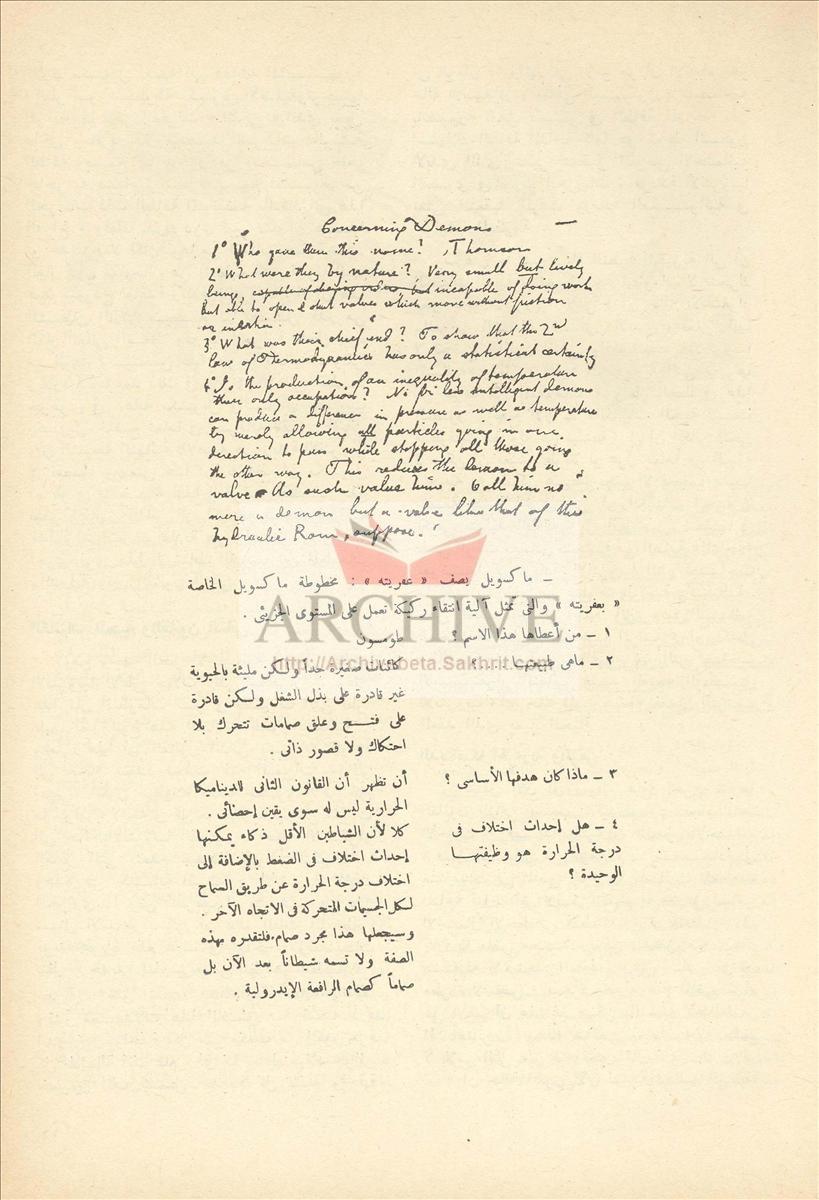 Concerning Demons
1° Who gave them this name? Thomson
2° What were they by nature? Very small but lively
beings capable of doing work but incapable of doing work
but able to open & shut valves which move without friction
or inertia.
3° What was their chief end? To show that the 2nd
Law of Thermodynamics has only a statistical certainty
4° Is the production of an inequality of temperature
their only occupation? No for less intelligent demons
can produce a difference in pressure as well as temperature
by merely allowing all particles going in one
direction to pass while stopping all those going
the other way. This reduces the demon to a
valve. As such value him. Call him no
more a demon but a valve like that of the
hydraulic Ram, suppose.
– ماكسويل يصف « عفريته » : مخطوطة ماكسويل الخاصة
« بعفريته » والتي تمثل آلية انتقاء ركيكة تعمل على المستوى الجزيئى .
١ – من أعطاها هذا الاسم ؟ طومسون
٢ – ماهى طبيعتها . . . ؟ كائنات صغيرة جداً ولكن مليئة بالحيوية
غير قادرة على بذل الشغل ولكن قادرة
على فتح وعلق صمامات تتحرك بلا
احتكاك ولا قصور ذاتى .
٣ – ماذا كان هدفها الأساسى ؟ أن تظهر أن القانون الثانى للديناميكا
الحرارية ليس له سوى يقين إحصائى .
٤ – هل إحداث اختلاف فى
درجة الحرارة هو وظيفتها
الوحيدة ؟
كلا لأن الشياطين الأقل ذكاء يمكنها
إحداث اختلاف فى الضغط بالإضافة إلى
اختلاف درجة الحرارة عن طريق السماح
لكل الجسيمات المتحركة فى الاتجاه الآخر .
وسيجعلها هذا مجرد صمام فلتقدره بهذه
الصفة ولا تسمه شيطاناً بعد الآن بل
صماماً كصمام الرافعة الإيدرولية .
ARCHIVE
http://Archivebeta.Sakhrit.com